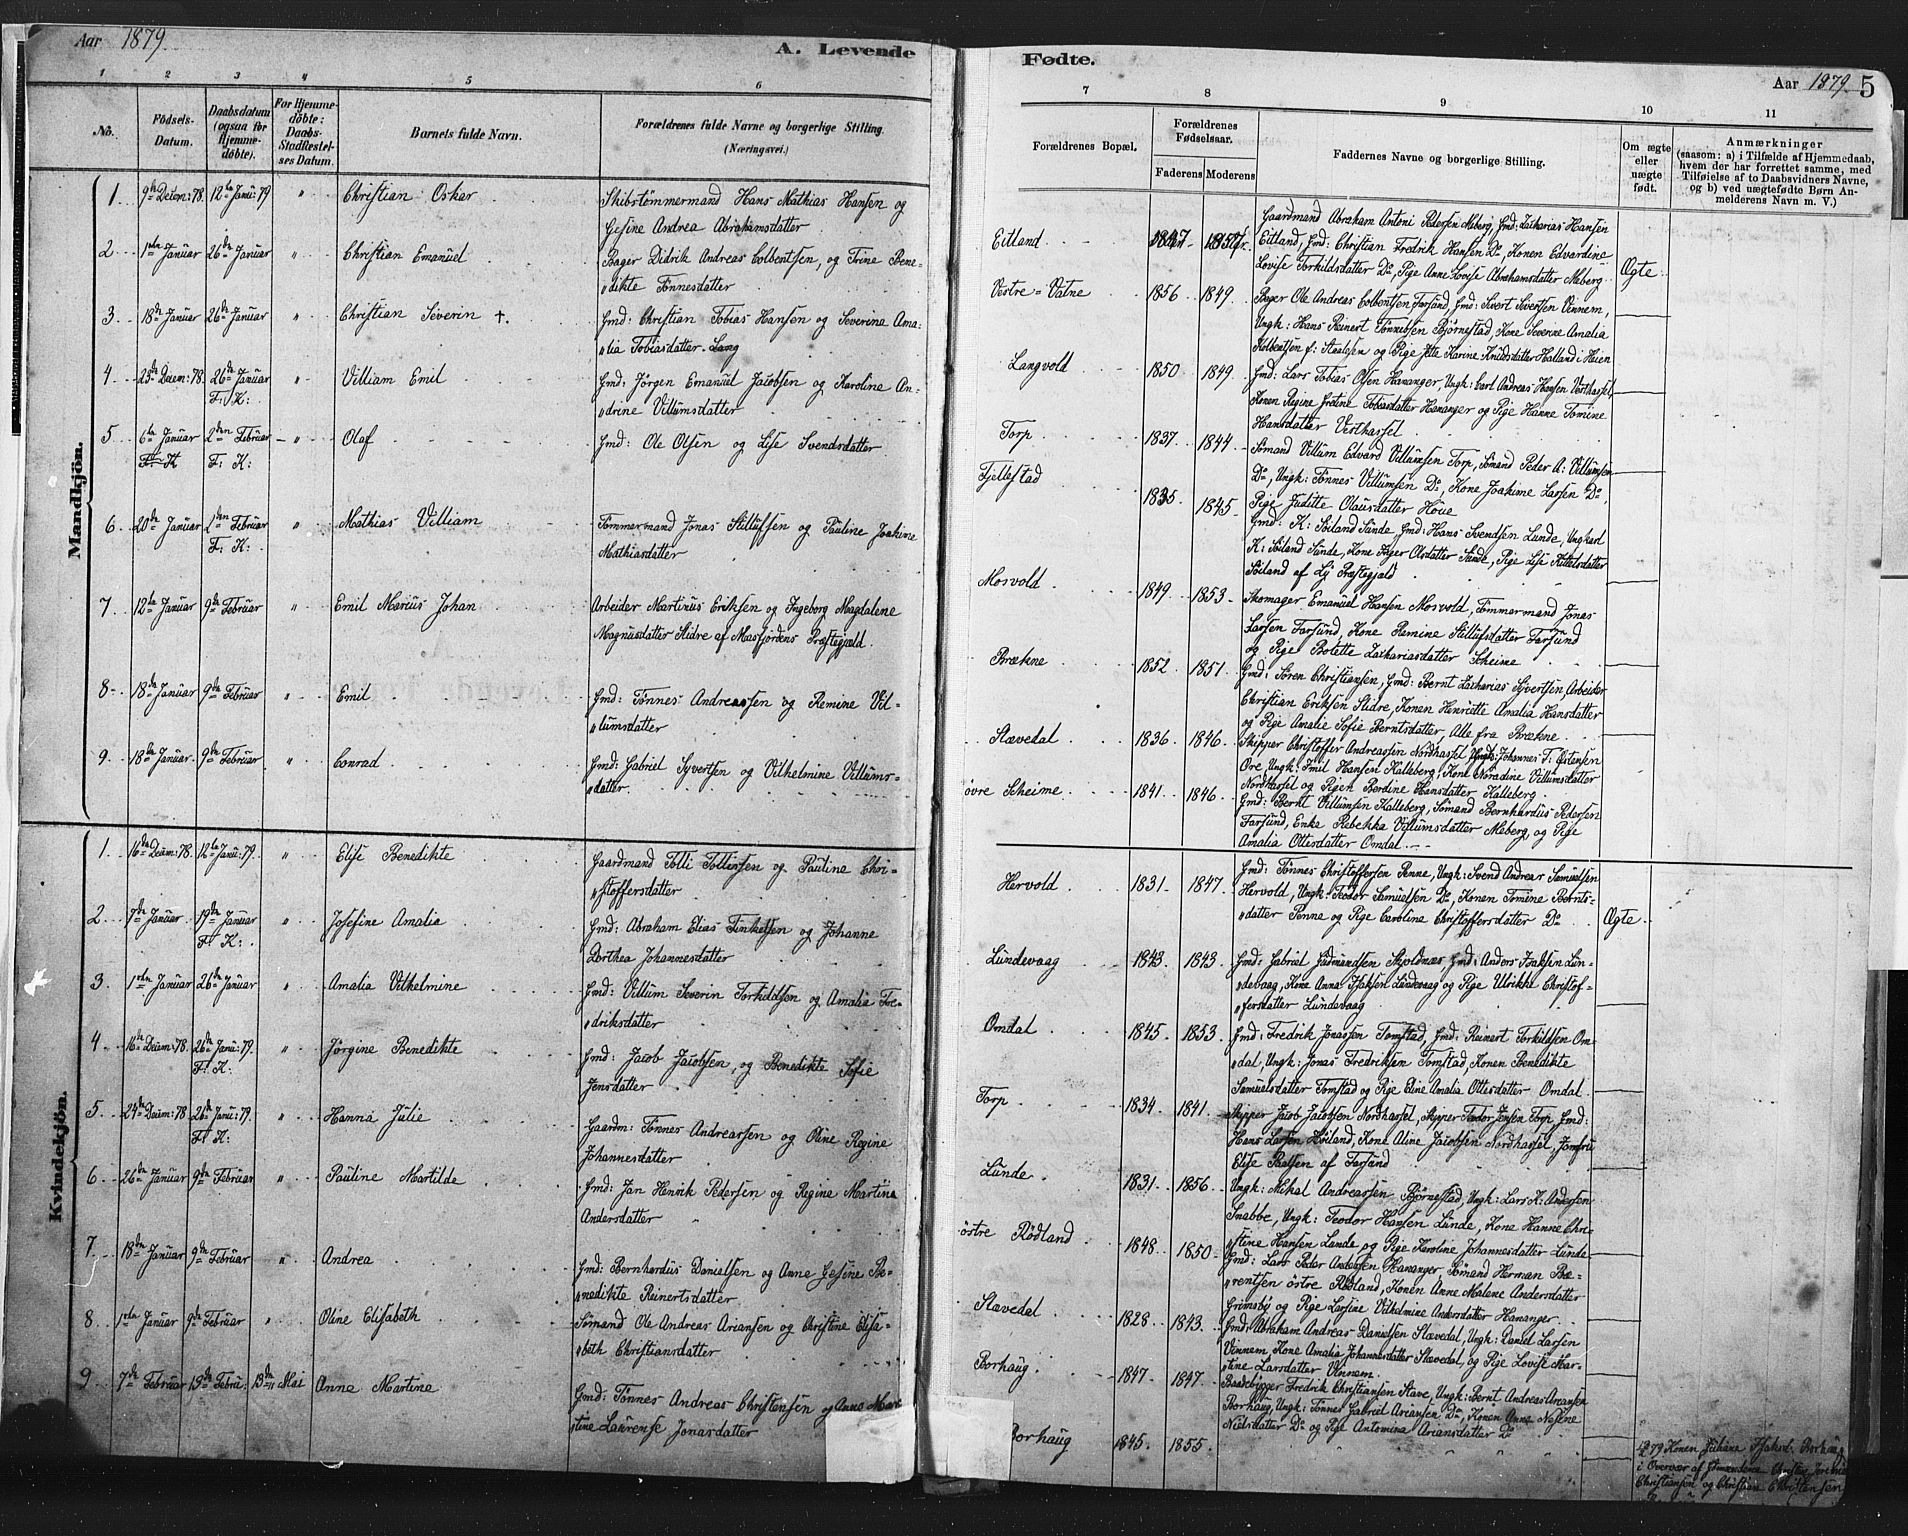 Aar 1879.
A. Levende
1 2 3 4 5 6
No.
Fødsels-
Datum.
Daabsdatum
(ogsaa for
Hjemme-
døbte).
For Hjemme-
døbte:
Daabs-
Stadfæstel-
ses Datum.
Barnets fulde Navn.
Forældrenes fulde Navne og borgerlige Stilling.
(Næringsvei.)
Mandkjön.
1 9de Decem: 78. 12te Janü: 79 " Christian Oskar Skibstømmermand Hans Mathias Hansen og
Gesine Andrea Abrahamsdatter
2 1ste Januar 26de Januar " Christian Emanuel Bager Didrik Andreas Colbentsen, og Trine Bene-
dikte Tønnesdatter
3 18de Januar 26de Januar " Christian Severin †. Gmd: Christian Tobias Hansen og Severine Ama-
lia Tobiasdatter Lang
4 23de Decem: 78. 26de Januar " Villiam Emil Gmd: Jørgen Emanuel Jacobsen og Karoline An-
F: K: drine Villumsdatter
5 6te Januar 2den Februar " Olaf Gmd: Ole Olsen og Lise Svendsdatter
F: K F: K:
6 20de Januar 2den Februar " Mathias Villiam Tømmermand Jonas Stillufsen og Pauline Joakime
F: K: Mathiasdatter
7 12te Januar 9de Februar " Emil Marius Johan Arbeider Martinus Eriksen og Ingeborg Magdalene
Magnusdatter Slidre af Masfjordens Præstegjæld.
8 18de Januar 9de Februar " Emil Gmd: Tønnes Andreassen og Remine Vil-
lumsdatter
9 18de Januar 9de Februar " Conrad Gmd: Gabriel Syvertsen og Vilhelmine Villums-
datter
Kvindekjön.
1 16de Decem: 78. 12te Janü: 79. " Elise Benedikte Gaardmand Tolli Tollissen og Pauline Chri-
stoffersdatter
2 7de Januar 19de Januar " Josefine Amalia Gmd: Abraham Elias Finkelsen og Johanne
F: K: Dorthea Johannesdatter
3 1ste Januar 26de Januar " Amalia Vilhelmine Gmd: Villum Severin Torkildsen og Amalia Fre-
driksdatter
4 16de Decem: 78. 26de Janü: 79. " Jørgine Benedikte Gmd: Jacob Jacobsen, og Benedikte Sofie
F: K: Jensdatter
5 24de Decem: 78 26de Janü: 79. " Hanna Julie Gaardm: Tønnes Andreassen og Oline Regine
F: K: Johannesdatter
6 26de Januar 9de Februar " Pauline Martilde Gmd: Jan Henrik Pedersen og Regine Martine
Andersdatter
7 18de Januar 9de Februar " Andrea Gmd: Bernhardus Danielsen og Anne Gesine Be-
nedikte Reinertsdatter
8 1ste Januar 9de Februar " Oline Elisabeth Sømand Ole Andreas Ariansen og Christine Elisa-
beth Christiansdatter
9 7de Februar Febru: 13de Mai Anne Martine Gmd: Tønnes Andreas Christensen og Anne
stine Laurense Jonasdatter
Fødte.
Aar 1879. 5
7 8 9 10 11
Forældrenes Bopæl.
Forældrenes
Fødselsaar.
Faderens Moderens
Faddernes Navne og borgerlige Stilling.
Om ægte
eller
uægte
født.
Anmærkninger
(saasom: a) i Tilfælde af Hjemmedaab,
hvem der har forrettet samme, med
Tilføielse af to Daabsvidners Navne,
og b) ved uægtefødte Børn An-
melderens Navn m. V.)
Gaardmand Abraham Antoni Pedersen Meberg, Gmd: Zacharias Hansen
Eitland 1847 1857 Eitland, Gmd: Christian Fredrik Hansen Do, Konen Edvardine
Lovise Torkildsdatter Do, Pige Anne Lovise Abrahamsdatter Meberg Ægte
Vestre-Vatne 1856 1849 Bager Ole Andreas Colbentsen Farsund, Gmd: Sivert Sivertsen Vennem,
Ungk: Hans Reinert Tønnessen Bjørnestad, Kone Severine Amalia
Kolbentsen f: Staalsen og Pige Jette Karine Knudsdatter Halland i Heien
Langvold 1850 1849 Gmd: Lars Tobias Olsen Hananger, Ungk: Carl Andreas Hansen Vesthassel,
Konen Regine Gretine Tobiasdatter Hananger og Pige Hanne Tomine
Hansdatter Vesthassel
Torp 1837 1844 Sømand Villum Edvard Villumsen Torp, Sømand Peder A: Villumsen
Do, Ungk: Tønnes Villumsen Do, Kone Joakime Larsen Do,
Pige Juditte Olausdatter Houe
Fjellestad 1835 1845 Gmd: K: Søiland Sunde, Gmd: Hans Svendsen Lunde, Ungkarl
K: Søiland Sunde, Kone Inger Olsdatter Sunde, Pige Lise Kittelsdatter
Søiland af Ly Præstegjæld
Mosvold 1849 1853 Skomager Emanuel Hansen Mosvold, Tømmermand Jonas
Larsen Farsund, Kone Remine Stillufsdatter Farsund
og Pige Bolette Zachariasdatter Scheime
Brækne 1852 1851 Gmd: Søren Christiansen, Gmd: Bernt Zacharias Syvertsen, Arbeider
Christian Eriksen Slidre, Konen Henriette Amalia Hansdatter
og Pige Amalie Sofie Berntsdatter, Alle fra Brækne
Stavedal 1836 1846 Skipper Christoffer Andreassen Nordhassel Ungk: Johannes T: Østensen
Ore Ungk: Emil Hansen Kalleberg, Kone Noradine Villumsdatter
Nordhassel og Pigen Berdine Hansdatter Kalleberg
øvre Scheime 1841 1846 Gmd: Bernt Villumsen Kalleberg, Sømand Bernhardus Pedersen
Farsund, Enke Rebekka Villumsdatter Meberg, og Pige
Amalia Ottersdatter Omdal
Hervold 1831 1847 Gmd: Tønnes Christoffersen Penne, Ungk: Svend Andreas Samuelsen
Hervold, Ungk: Teodor Samuelsen Do, Konen Tomine Bernts-
datter Penne og Pige Caroline Christoffersdatter Do Ægte
Lundevaag 1843 1843 Gmd: Gabriel Gudmundsen Skjoldnes Gmd: Anders Isaksen Lun-
devaag, Kone Anna Isaksen Lundevaag og Pige Ulrikke Christof-
fersdatter Lundevaag
Omdal 1845 1853 Gmd: Fredrik Jonassen Tomstad, Gmd: Reinert Torkildsen Om-
dal, Ungk: Jonas Fredriksen Tomstad, Konen Benedikte
Samuelsdatter Tomstad og Pige Eline Amalia Ottersdatter Omdal
Torp 1834 1841 Skipper Jacob Jacobsen Nordhassel, Skipper Teodor Jensen Torp Gmd:
Hans Larsen Høiland, Kone Aline Jacobsen Nordhassel, Jomfru
Elise Paalsen af Farsund
Lunde 1831 1856 Ungk: Mikal Andreassen Bjørnestad, Ungk: Lars K: Andersen
Snabbe, Ungk: Teodor Hansen Lunde, Kone Hanne Chri-
stine Hansen Lunde og Pige Karoline Johannesdatter Lunde
østre Rødland 1848 1850 Gmd: Lars Peder Andersen Hananger Sømand Herman Be-
rentsen østre Rødland, Konen Anne Malene Andersdatter
Grimsby og Pige Larsine Vilhelmine Andersdatter Hananger
Stavedal 1828 1843 Gmd: Abraham Andreas Danielsen Stavedal, Ungk: Daniel Larsen
Vinnem, Kone Amalia Johannesdatter Stavedal, og Pige Lovise Mar-
tine Larsdatter Vinnem
Borhaug 1847 1847 Baadebygger Fredrik Christiansen Stave, Ungk: Bernt Andreas Ariansen
Borhaug, Ungk: Tønnes Gabriel Ariansen Do, Konen Anne Nesine
Nielsdatter Do og Pige Antomina Ariansdatter Do
Borhaug 1845 1855 " " " "
1879 Konen Juliane Isaksd. Borhaug
i Overvær af
Christiansen og Christian Christensen